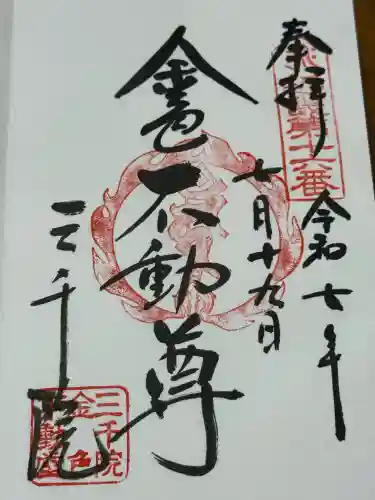 奉拝
令和七年
七月十九日
金色不動尊
三千院
第十六番
三千院
金色
不動堂